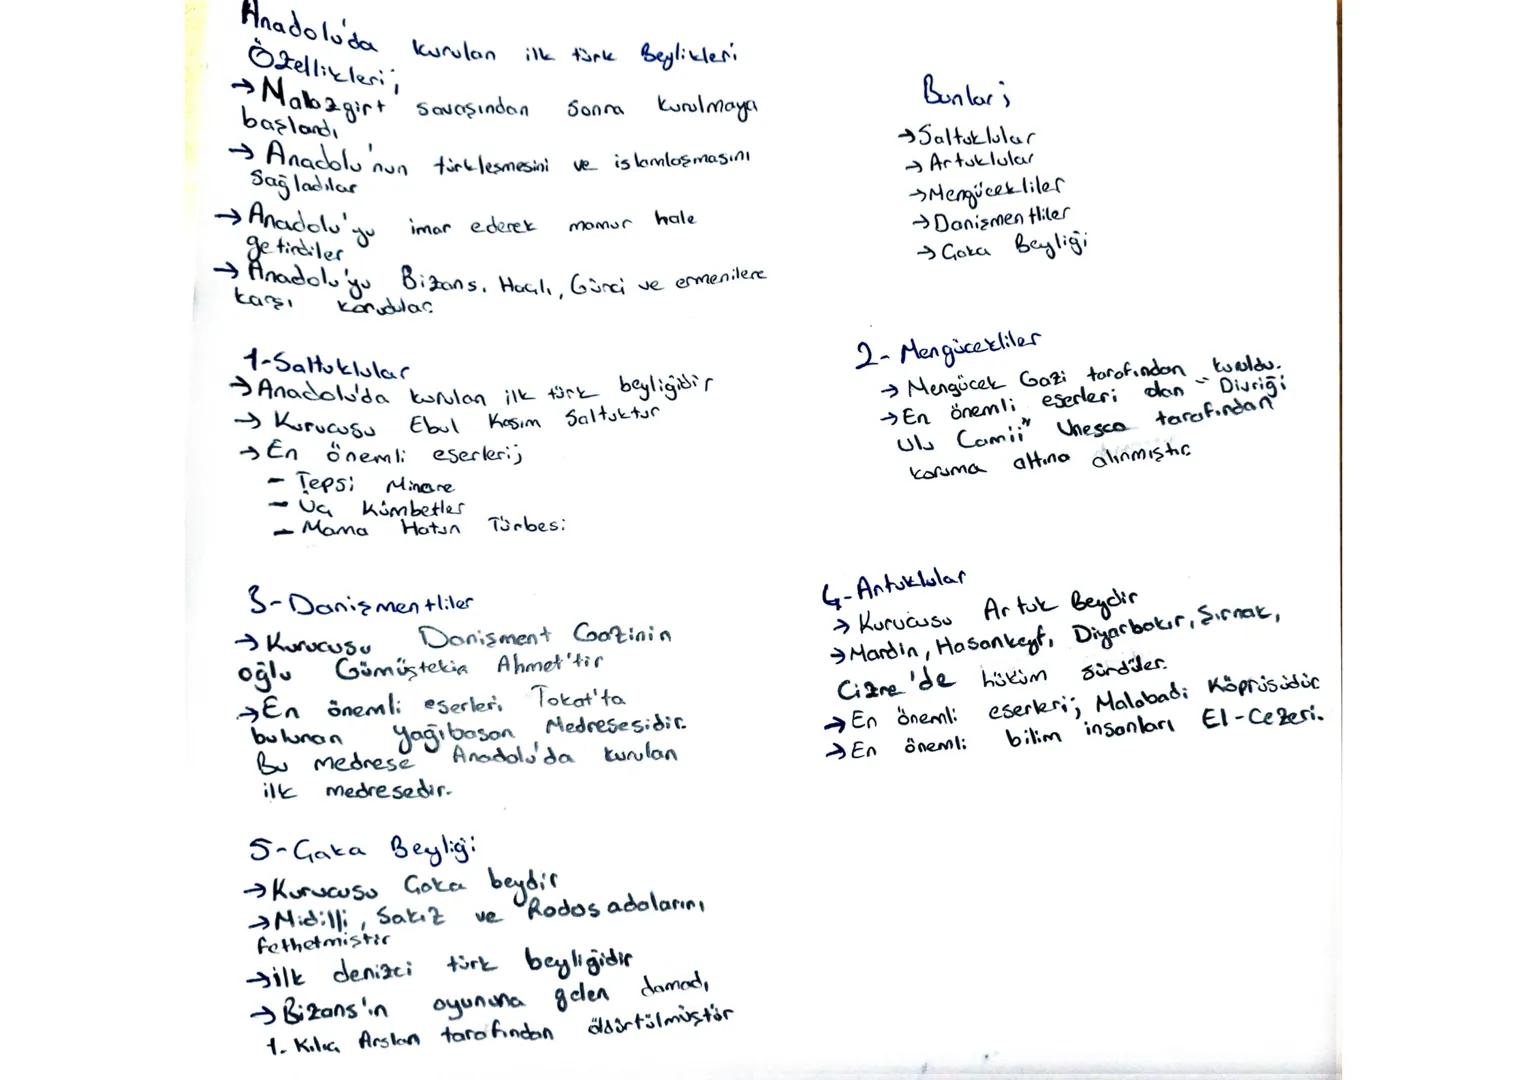 Anadolu'da kurulan ilk türk Beylikleri
Özellikleri;
→ Malazgirt savaşından sonra kurulmaya
başlandı
→ Anadolu'nun türkleşmesini ve islamlaşmasını
sağladılar
→ Anadolu'yu imar ederek mamur hale
getirdiler
→ Anadolu'yu Bizans, Haçlı, Gürci ve ermenilere
karşı korudular.
Bunlar;
→ Saltuklular
→ Artuklular
→ Mengücekliler
→ Danişmentliler
→ Çaka Beyliği
1-Saltuklular
→ Anadolu'da kurulan ilk türk beyliğidir
→ Kurucusu Ebul Kasım Saltuktur
→ En önemli eserleri;
- Tepsi Minare
- Üç Kümbetler
- Mama Hatun Türbesi
2- Mengücekliler
→ Mengücek Gazi tarafından kuruldu.
→ En önemli eserleri olan "Divriği
Ulu Camii" Unesco tarafından
koruma altına alınmıştır
3-Danişmentliler
→ Kurucusu Danişment Gazinin
oğlu Gümüştekin Ahmet'tir
→ En önemli eserleri Tokat'ta
bulunan Yağıbasan Medresesidir.
Bu medrese Anadolu'da kurulan
ilk medresedir.
4-Artuklular
→ Kurucusu Artuk Beydir
→ Mardin, Hasankeyf, Diyarbakır, Şırnak,
Cizre'de hüküm sürdüler.
→ En önemli eserleri; Malabadi Köprüsüdür
→ En önemli bilim insanları El-Cezeri.
5-Çaka Beyliği
→ Kurucusu Çaka beydir
→ Midilli, Sakız ve Rodos adalarını
fethetmiştir
→ ilk denizci türk beyliğidir
→ Bizans'ın oyununa gelen damadı
1. Kılıç Arslan tarafından öldürtülmüştür